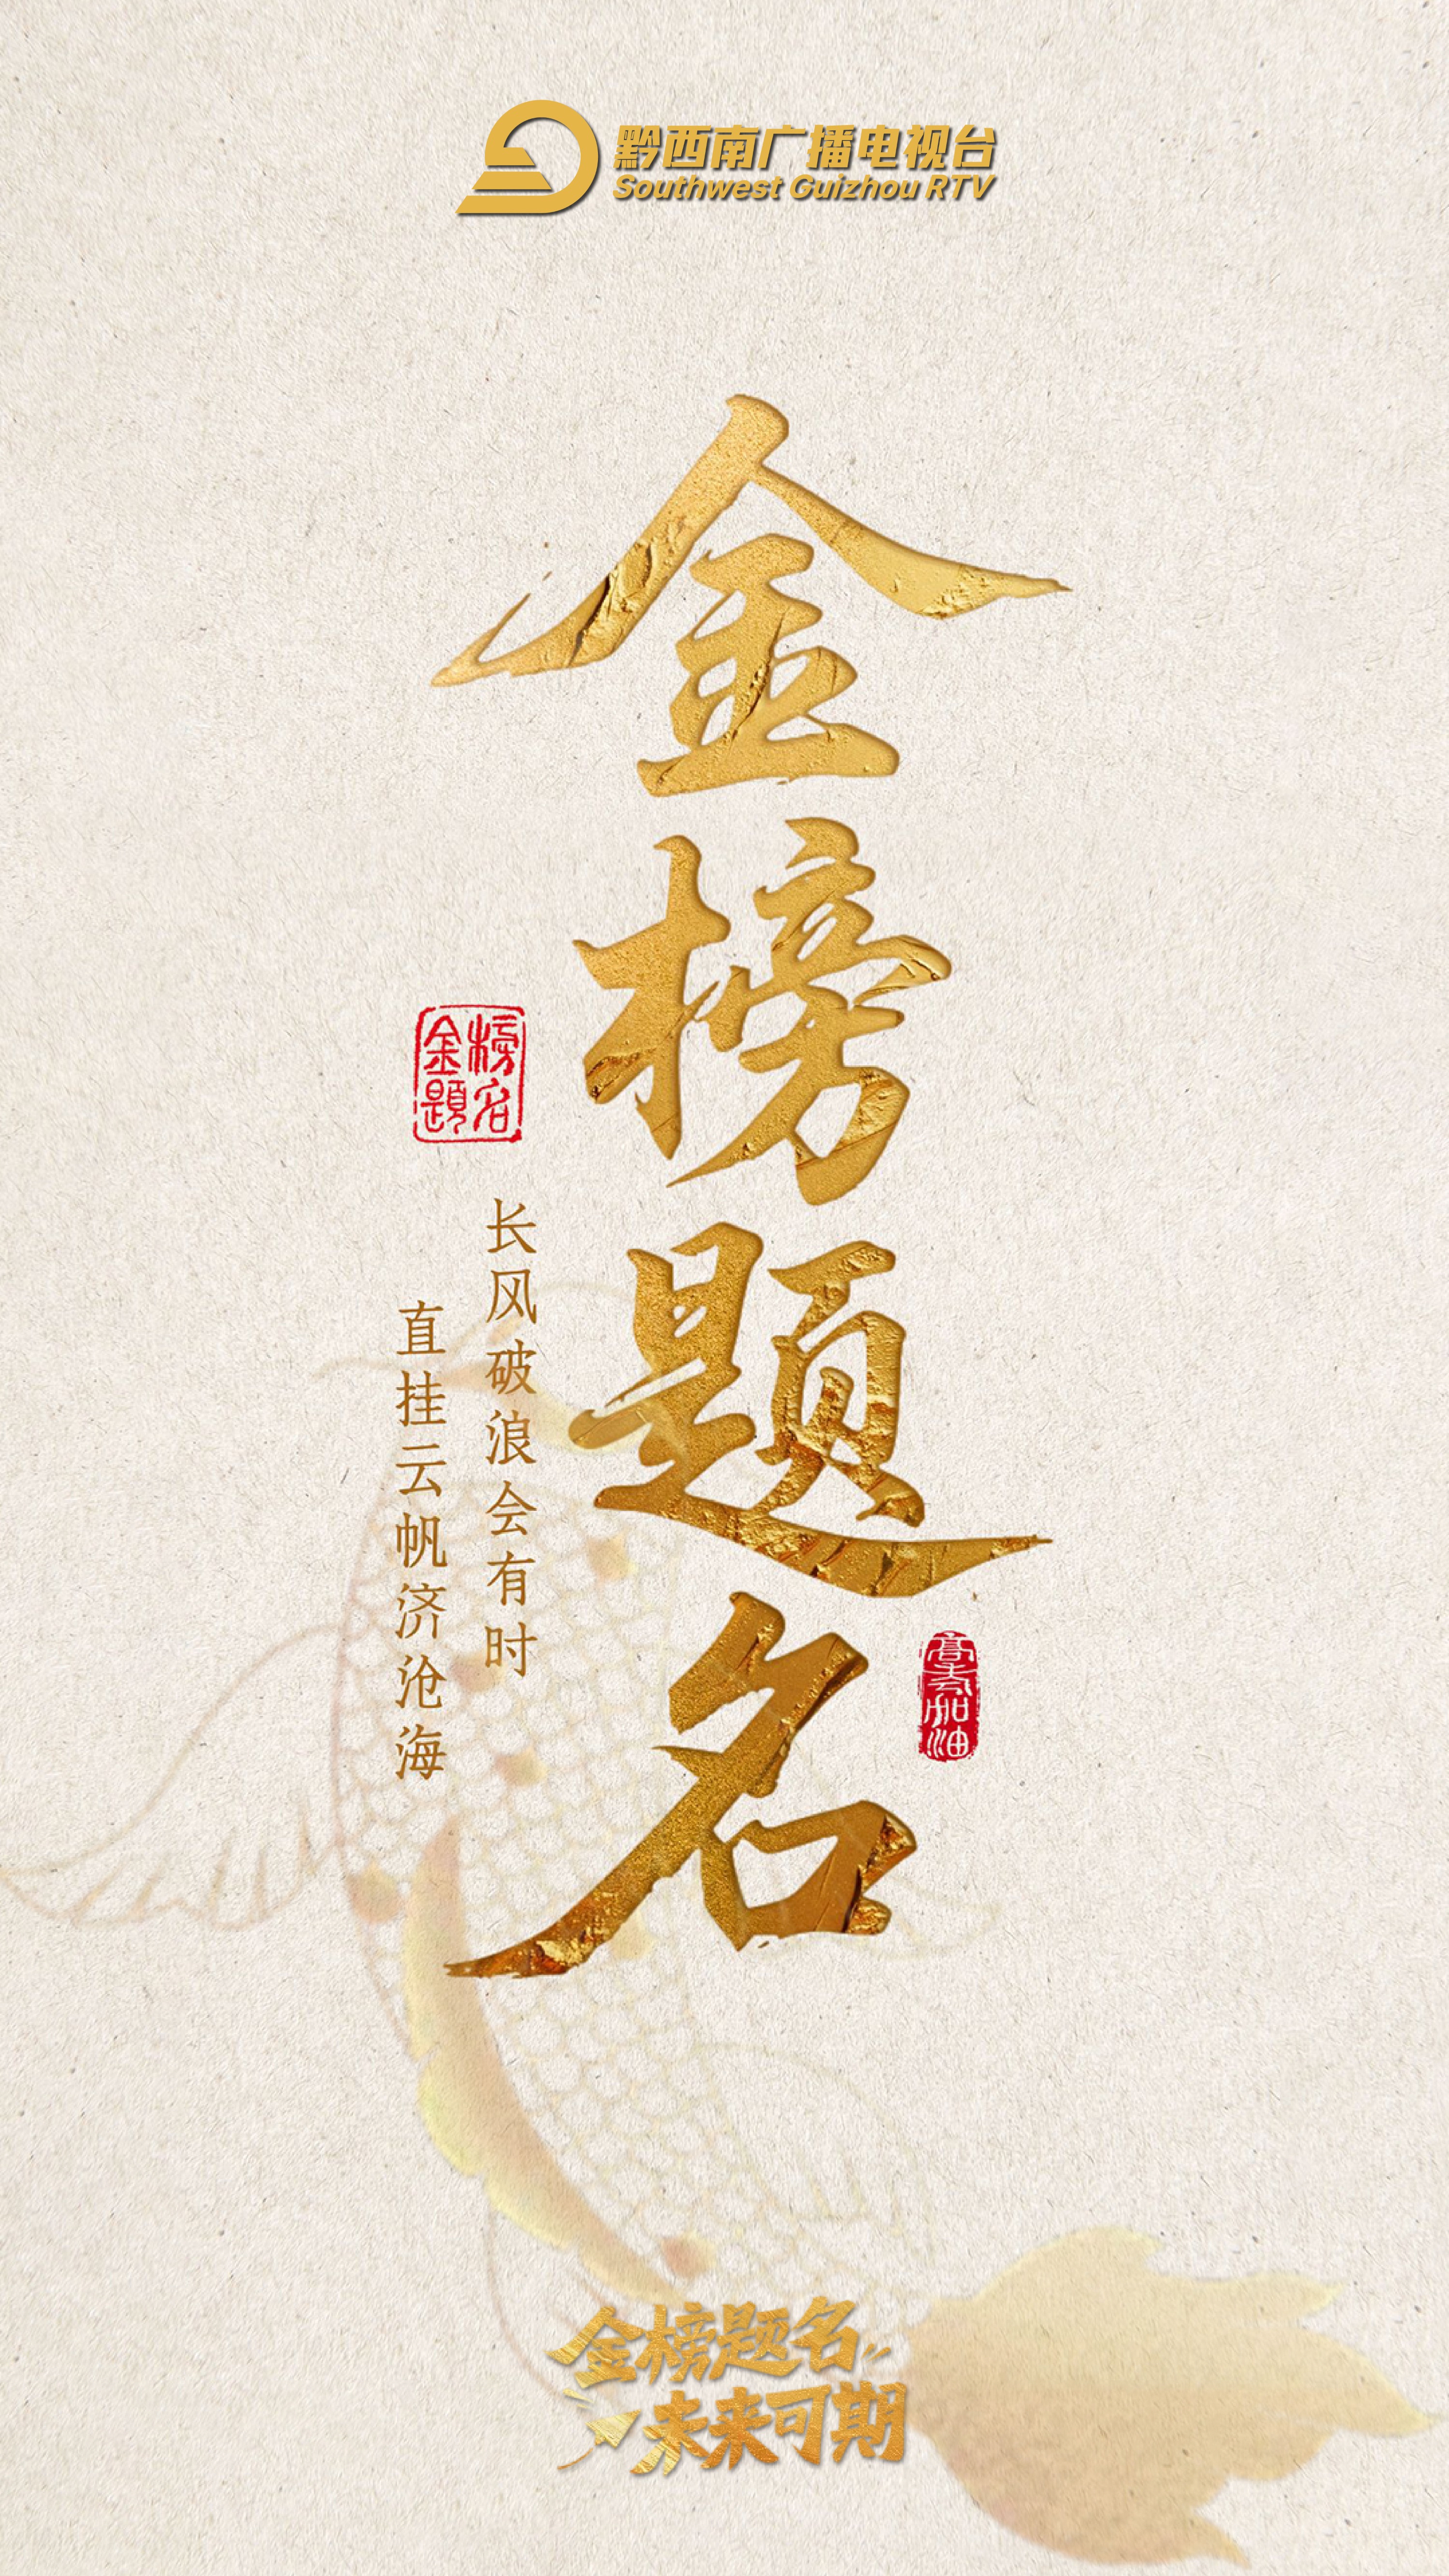 黔西南广播电视台
Southwest Guizhou RTV
金榜题名
金榜
題名
长风破浪会有时
直挂云帆济沧海
高考加油
金榜题名
未来可期